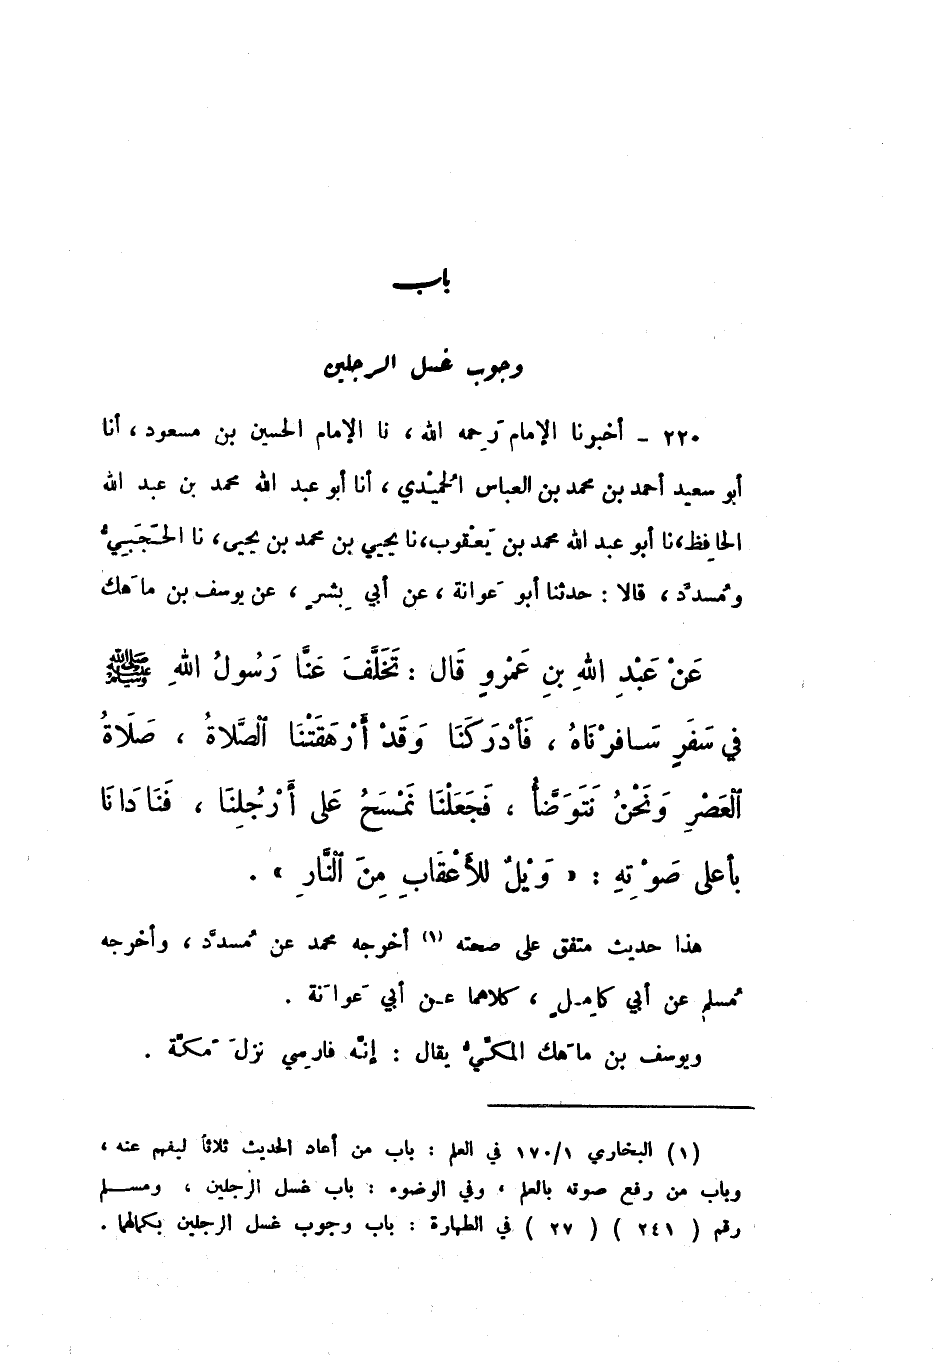 باب
وجوب غسل الرجلين
٢٢٠ - أخبرنا الإمام رَحِمه الله ، نا الإمام الحسين بن مسعود ، أنا
أبو سعيد أحمد بن محمد بن العباس الحُميْدي ، أنا أبو عبد الله محمد بن عبد الله
الحافِظ،نا أبو عبد الله محمد بن يَعْقوب،نا يحيي بن محمد بن يحيى ، نا الحَجَبيُّ
ومُسدَّد ، قالا : حدثنا أبو عَوانة ، عن أبي بِشرٍ ، عن يوسف بن ماهَك
عَنْ عَبْدِ اللهِ بنِ عَمْرٍو قَال : تَخَلَّفَ عَنَّا رَسُولُ اللهِ ﷺ
في سَفَرٍ سَافرْنَاهُ ، فَأدْرَكَنَا وَقَدْ أَرْهَقَتْنَا الصَّلاةُ ، صَلَاةُ
العَصْرِ وَنَحْنُ نَتَوَضَّأُ ، فَجَعَلْنَا نَمْسَحُ عَلى أَرْجُلِنَا ، فَنَادَانَا
بأعلى صَوْتِهِ : « وَيْلٌ للأَعْقَابِ مِنَ النَّارِ » .
هذا حديث متفق على صحته (١) أخرجه محمد عن مُسدَّد ، وأخرجه
مُسلم عن أبي كامِلٍ ، كلاهما عن أبي عَوانَة .
ويوسف بن ماهَك المكيُّ يقال : إنَّه فارسي نزلَ مَكَّة .
(١) البخاري ١٧٠/١ في العلم : باب من أعاد الحديث ثلاثاً ليفهم عنه ،
وباب من رفع صوته بالعلم ، وفي الوضوء : باب غسل الرجلين ، ومسلم
رقم ( ٢٤١ ) ( ٢٧ ) في الطهارة : باب وجوب غسل الرجلين بكمالهما .